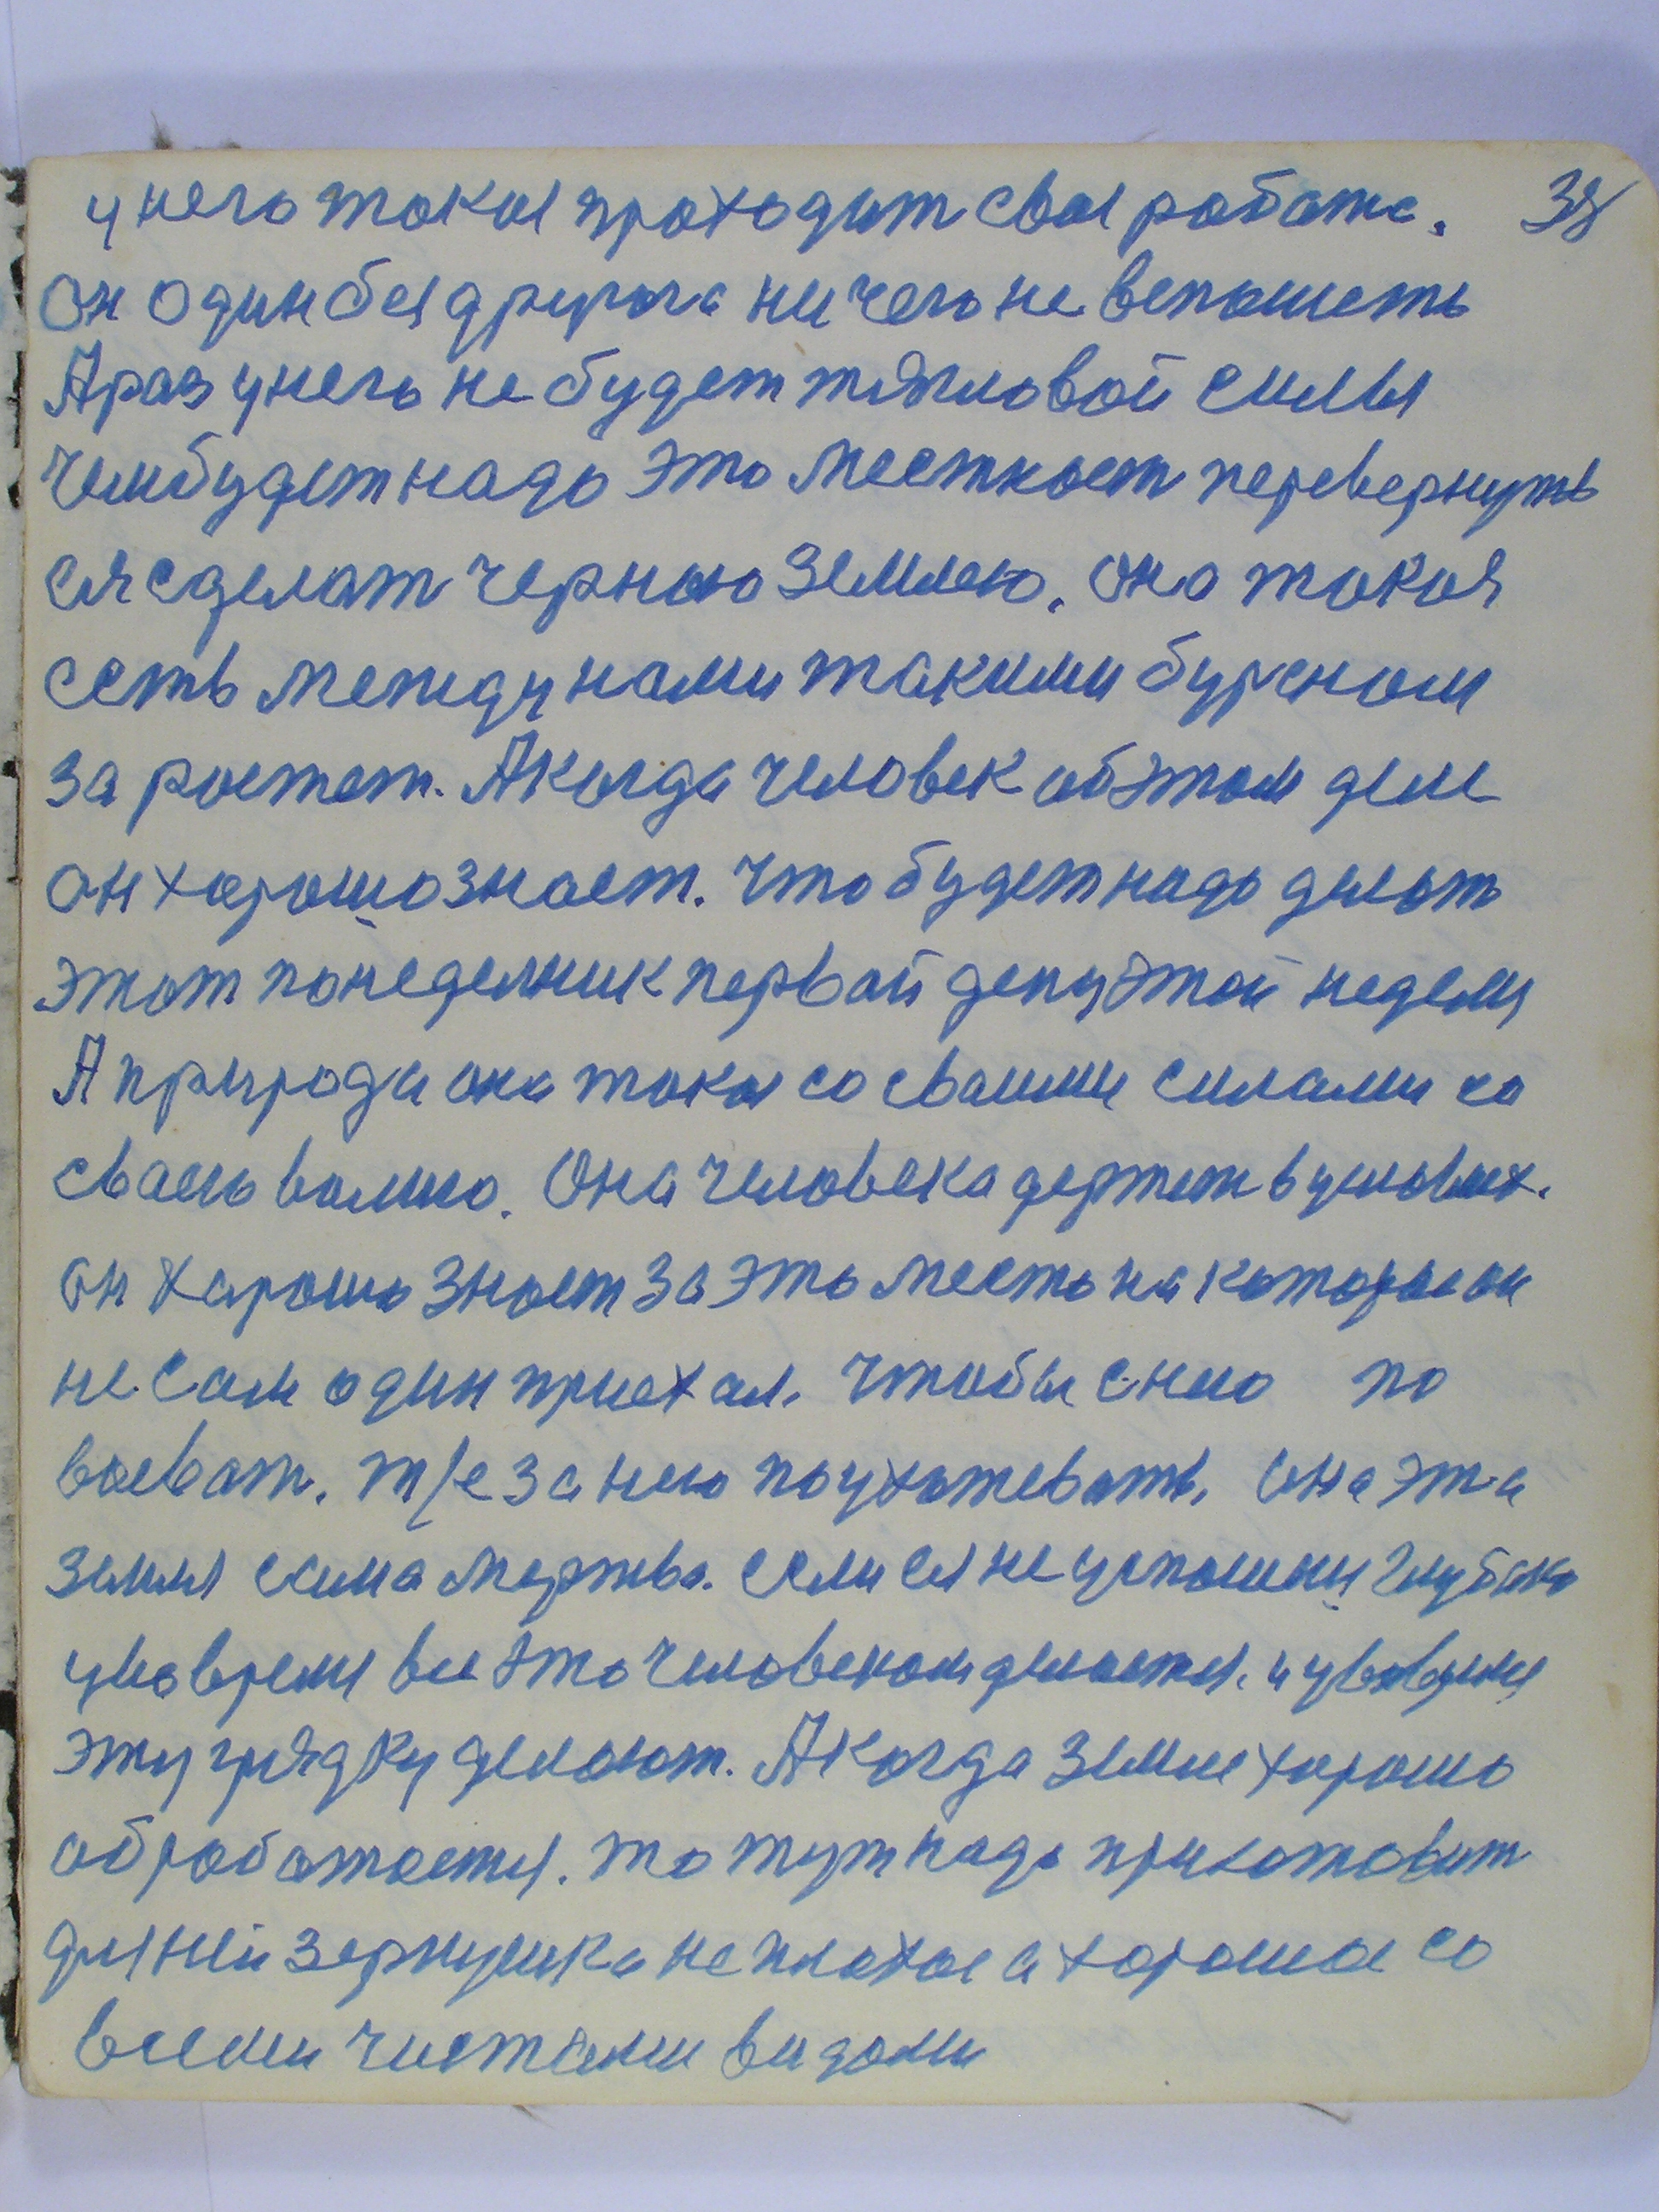 у него такая проходит своя работа. 38
Он один без другога ничего не вспашеть
А раз у него не будет тягловой силы
Чем будет надо это местност перевернуть
ея сделат черною землею. она такая
есть между нами такими буряном
за ростет. А когда человек об этом деле
он хорошо знает. что будет надо делать
этот понеделник первой день этой недели
А природа она такая со своими силами со
своею волию. Она человека держит в условиях.
он хорошо знает за это место на которое он
не сам один приехал. Чтобы с нею по
воеват. т/е за нею поухажевать. Она эта
земля сама мертва. если ея не успашиш глубоко
у но время все это человеком делается. и у вовремя
эту грядку делают. А когда земля хорошо
обработается. то тут надо приготовит
для ней зернушка не плохое а хорошое со
всеми чистыми видами